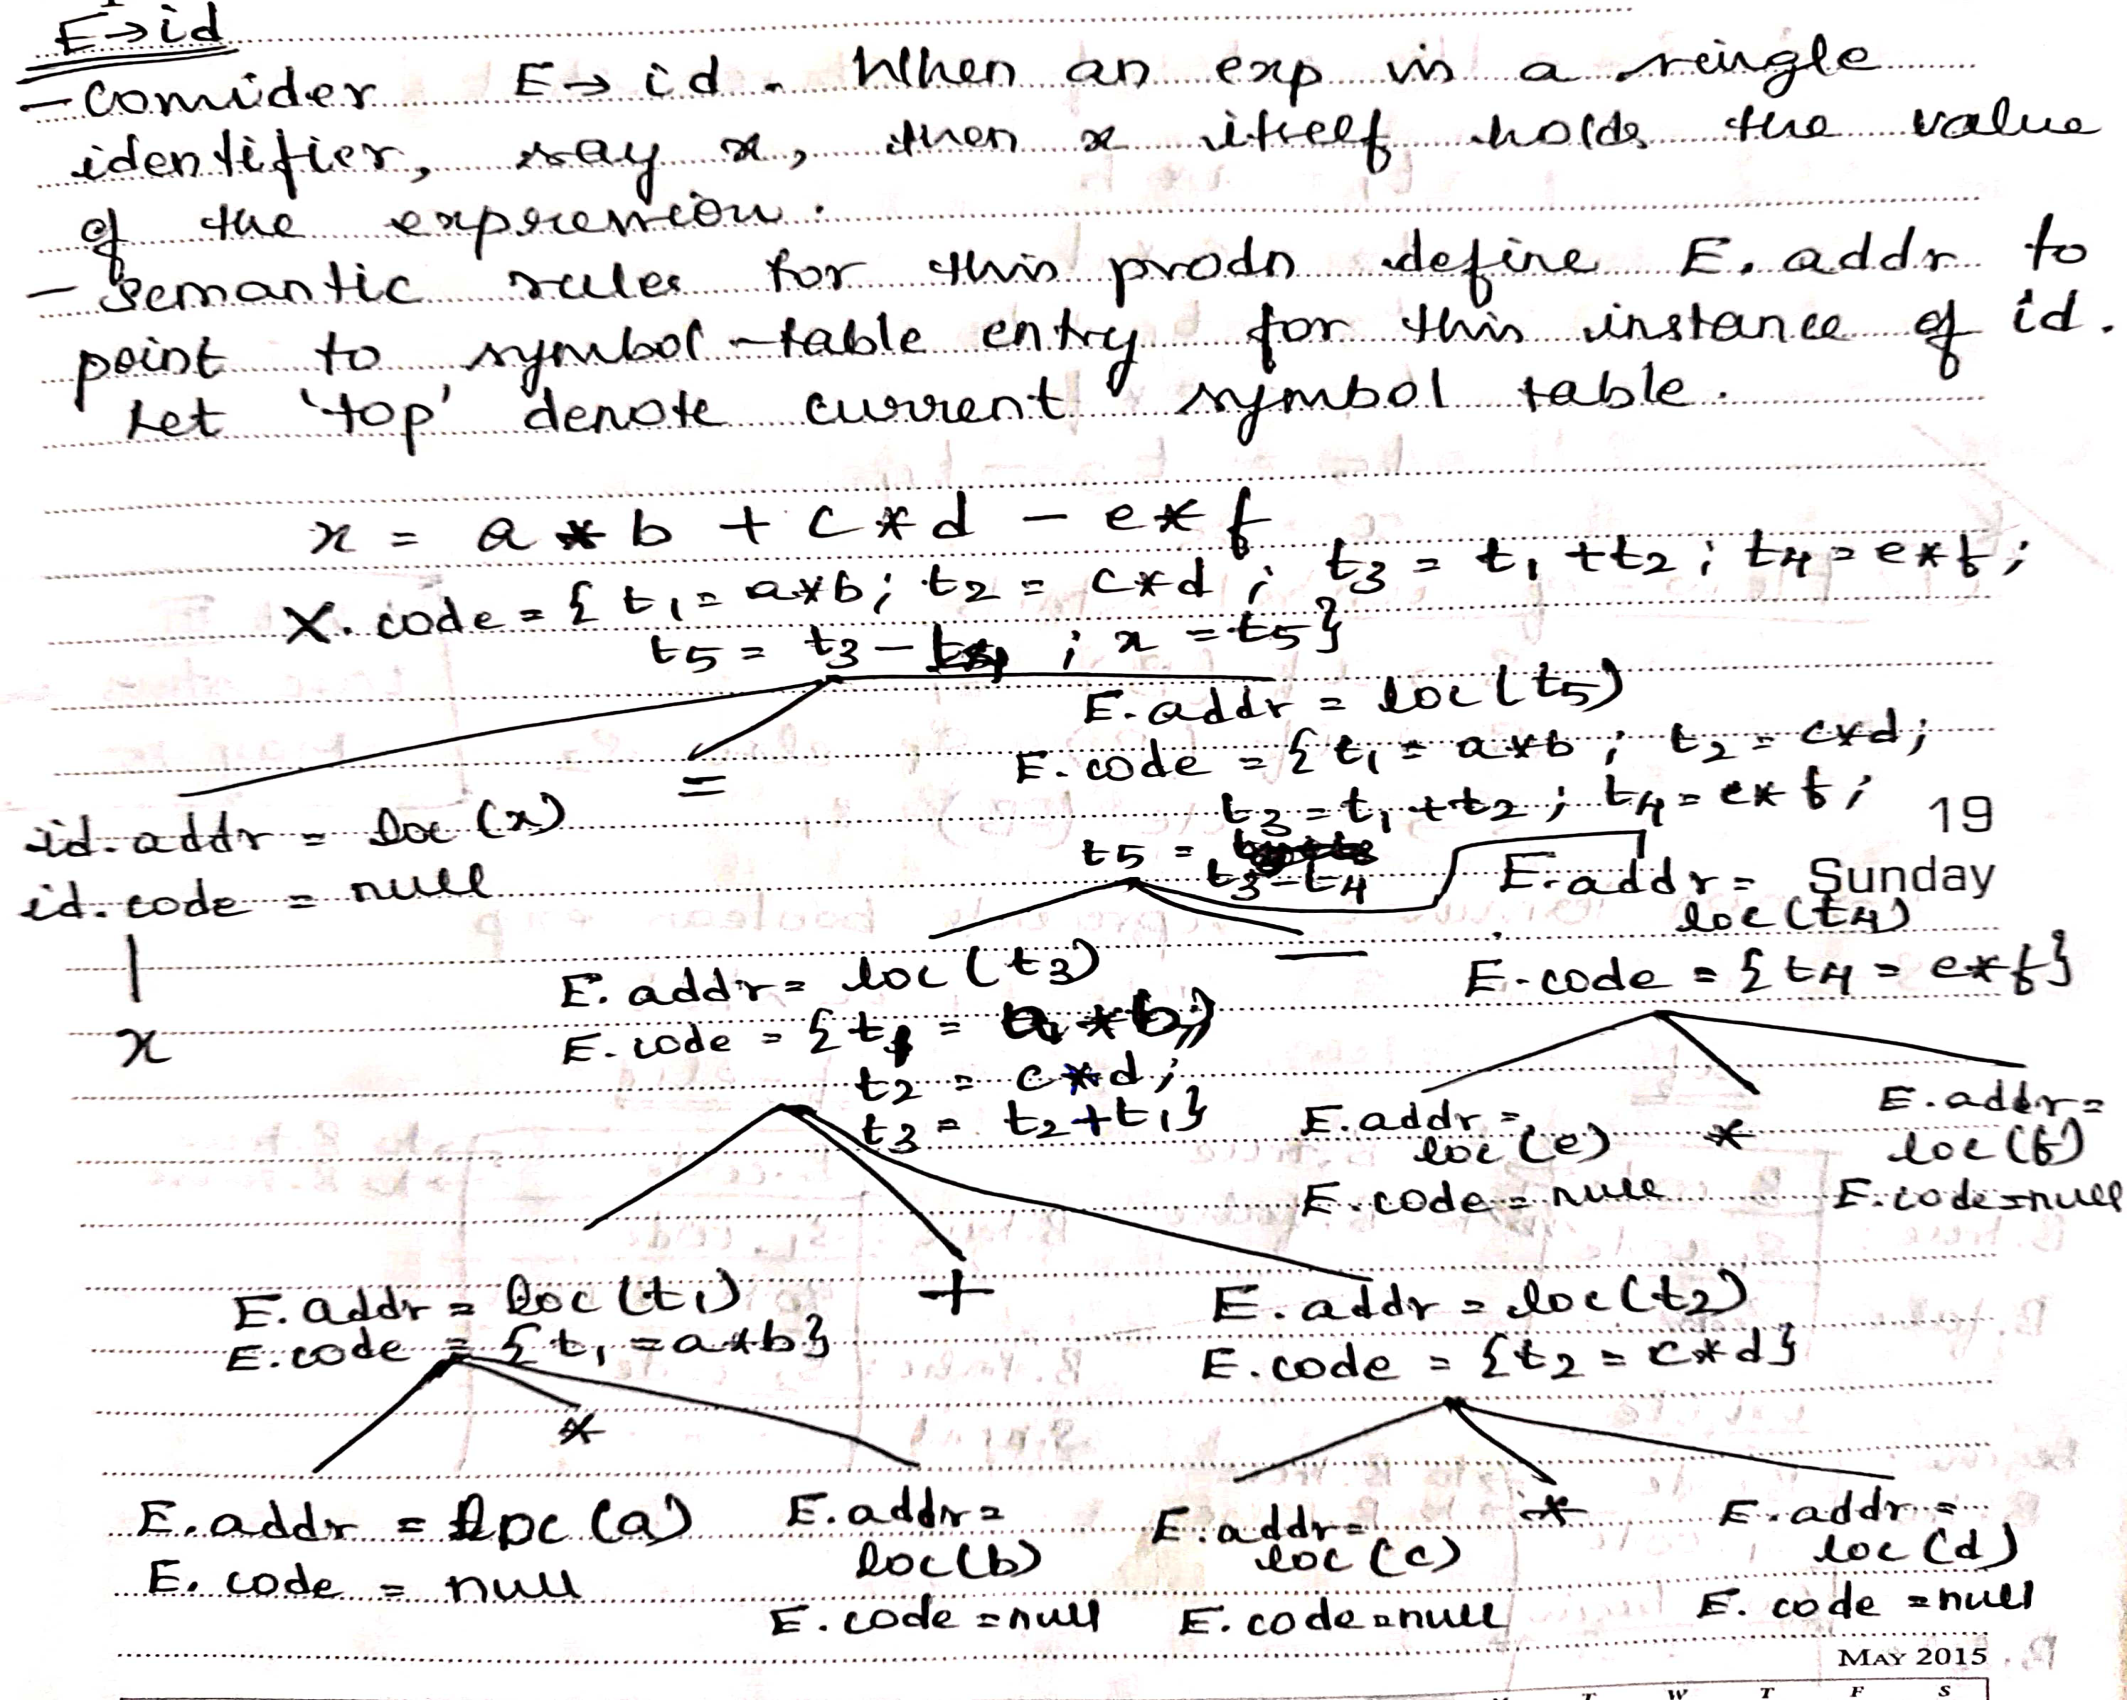 E→id
- Consider E→id. When an exp is a single
identifier, say x, then x itself holds the value
of the expression.
- Semantic rules for this prodn define E.addr to
point to symbol-table entry for this instance of id.
Let 'top' denote current symbol table.
x = a * b + c * d - e * f
X.code = { t1 = a*b; t2 = c*d; t3 = t1 + t2; t4 = e*f;
t5 = t3 - t4; x = t5}
E.addr = loc(t5)
E.code = { t1 = a*b; t2 = c*d;
t3 = t1 + t2; t4 = e*f;
t5 =
t3-t4
id.addr = loc(x)
id.code = null
x
=
19
Sunday
E.addr = loc(t3)
E.code = { t1 = a * b;
t2 = c*d;
t3 = t2+t1}
-
E.addr =
loc(t4)
E.code = {t4 = e*f}
E.addr =
loc(e)
E.code = null
*
E.addr =
loc(f)
E.code=null
E.addr = loc(t1)
E.code = {t1 = a*b}
+
E.addr = loc(t2)
E.code = {t2 = c*d}
E.addr = loc(a)
E.code = null
*
E.addr =
loc(b)
E.code = null
E.addr =
loc(c)
E.code = null
*
E.addr =
loc(d)
E.code = null
MAY 2015
W T F S